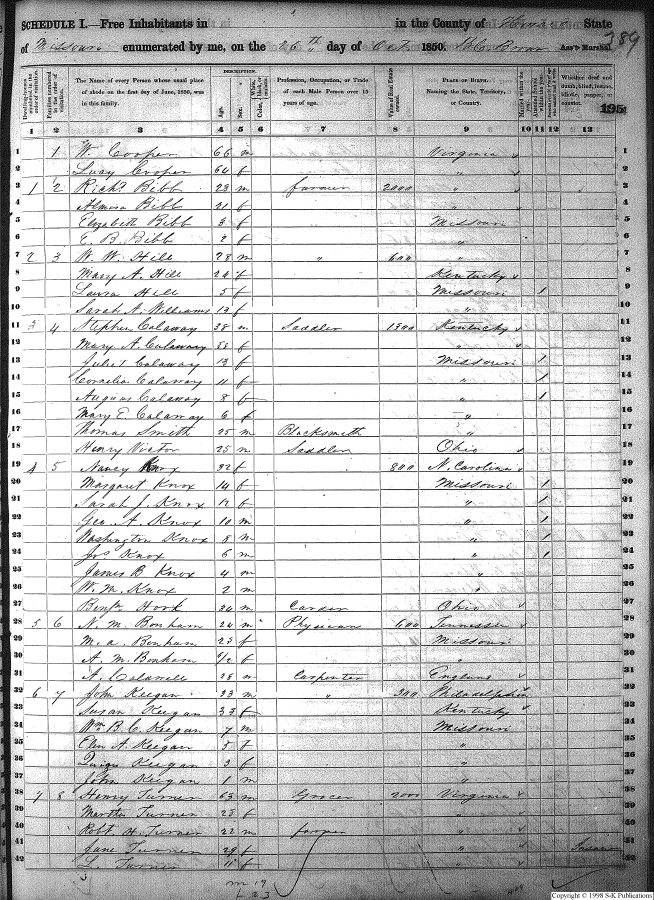 SCHEDULE I.—Free Inhabitants in in the County of State
of Missouri enumerated by me, on the 26th day of Oct 1850. Ass't Marshal.
389
195
DESCRIPTION.
The Name of every Person whose usual place of abode on the first day of June, 1850, was in this family.
Age.
Sex.
Profession, Occupation, or Trade of each Male Person over 15 years of age.
Value of Real Estate owned.
PLACE OF BIRTH. Naming the State, Territory, or Country.
Whether deaf and dumb, blind, insane, idiotic, pauper, or convict.
1 2 3 4 5 6 7 8 9 10 11 12 13
1 1 W Cooper 66 m Virginia 1
2 Lucy Cooper 64 f " 2
3 1 2 Richd Bibb 28 m farmer 2000 " 3
4 Almira Bibb 21 f " 4
5 Elizabeth Bibb 3 f Missouri 5
6 E. B. Bibb 2 f " 6
7 2 3 W. W. Hill 28 m " 600 " 7
8 Mary A. Hill 24 f Kentucky 8
9 Laura Hill 5 f Missouri 1 9
10 Sarah A. Williams 13 f " 10
11 3 4 Stephen Calaway 38 m Saddler 1300 Kentucky 11
12 Mary A. Calaway f " 12
13 Calaway 13 f Missouri 1 13
14 Cornelia Calaway 11 f " 1 14
15 Calaway 8 f " 1 15
16 Mary E Calaway 6 f " 16
17 Thomas Smith 25 m Blacksmith " 17
18 Henry 25 m Saddler Ohio 18
19 4 5 Nancy Knox 32 f 800 N. Carolina 19
20 Margaret Knox 14 f Missouri 1 20
21 Sarah J. Knox 12 f " 1 21
22 Geo. A. Knox 10 m " 1 22
23 Washington Knox 8 m " 1 23
24 Jos Knox 6 m " 1 24
25 James B Knox 4 m " 25
26 W. M. Knox 2 m " 26
27 Benjn Hook m Ohio 27
28 5 6 N. M. Bonham 24 m Physician 600 Tennessee 28
29 M. A. Bonham 23 f Missouri 29
30 A. M. Bonham f " 30
31 A. 28 m Carpenter England 31
32 6 7 John Keegan 33 m " 300 Philadelphia 32
33 Susan Keegan 33 f Kentucky 33
34 Wm B. C. Keegan 7 m Missouri 34
35 Elen A. Keegan 5 f " 35
36 Keegan 3 f " 36
37 John Keegan 1 m " 37
38 7 8 Henry Turner 63 m Grocer 2000 Virginia 38
39 Martha Turner 28 f " 39
40 Robt H. Turner 22 m farmer " 40
41 Jane Turner 29 f " Insane 41
42 L. Turner 11 f " 42
3
m 19
f 23
Copyright © 1998 S-K Publications